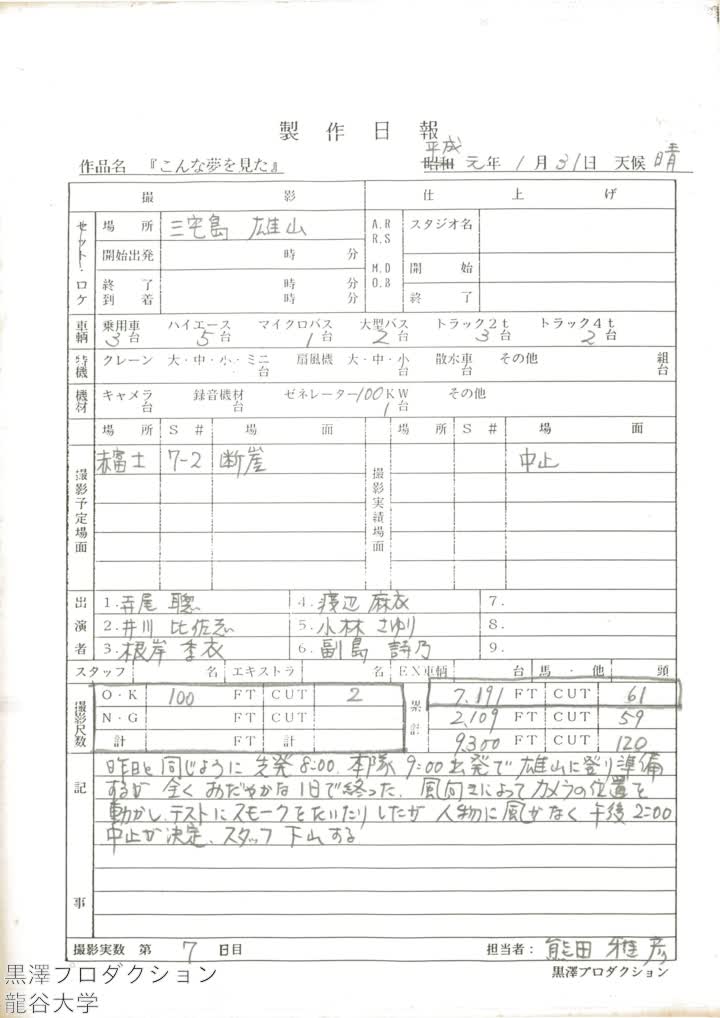 製作日報
作品名 『こんな夢を見た』 昭和 平成 元年 1月31日 天候 晴
撮影 仕上げ
セット・ロケ 場所 三宅島 雄山 A.R R.S M.D O.B スタジオ名
開始出発 時 分 開始
終了到着 時 分 時 分 終了
車輌 乗用車 3台 ハイエース 5台 マイクロバス 1台 大型バス 2台 トラック2t 3台 トラック4t 2台
特機 クレーン 大・中・小・ミニ 台 扇風機 大・中・小 台 散水車 台 その他 組 台
機材 キャメラ 台 録音機材 台 ゼネレーター100KW 1台 その他
場所 S# 場面 場所 S# 場面
撮影予定場面 赤富士 7-2 断崖 撮影実績場面 中止
出演者 1.寺尾 聰 4.渡辺 麻衣 7.
2.井川 比佐志 5.小林 さゆり 8.
3.根岸 季衣 6.副島 詩乃 9.
スタッフ 名 エキストラ 名 EX車輌 台 馬・他 頭
撮影尺数 O・K 100 FT CUT 2 累計 7.191 FT CUT 61
N・G FT CUT 2,109 FT CUT 59
計 FT 計 9,300 FT CUT 120
記事 昨日と同じように先発8:00.本隊9:00出発で雄山に登り準備
するが全くおだやかな1日で終った.風向きによってカメラの位置を
動かし.テストにスモークをたいたりしたが人物に風がなく午後2:00
中止が決定.スタッフ下山する
撮影実数 第 7 日目 担当者: 熊田 雅彦
黒澤プロダクション
黒澤プロダクション
龍谷大学